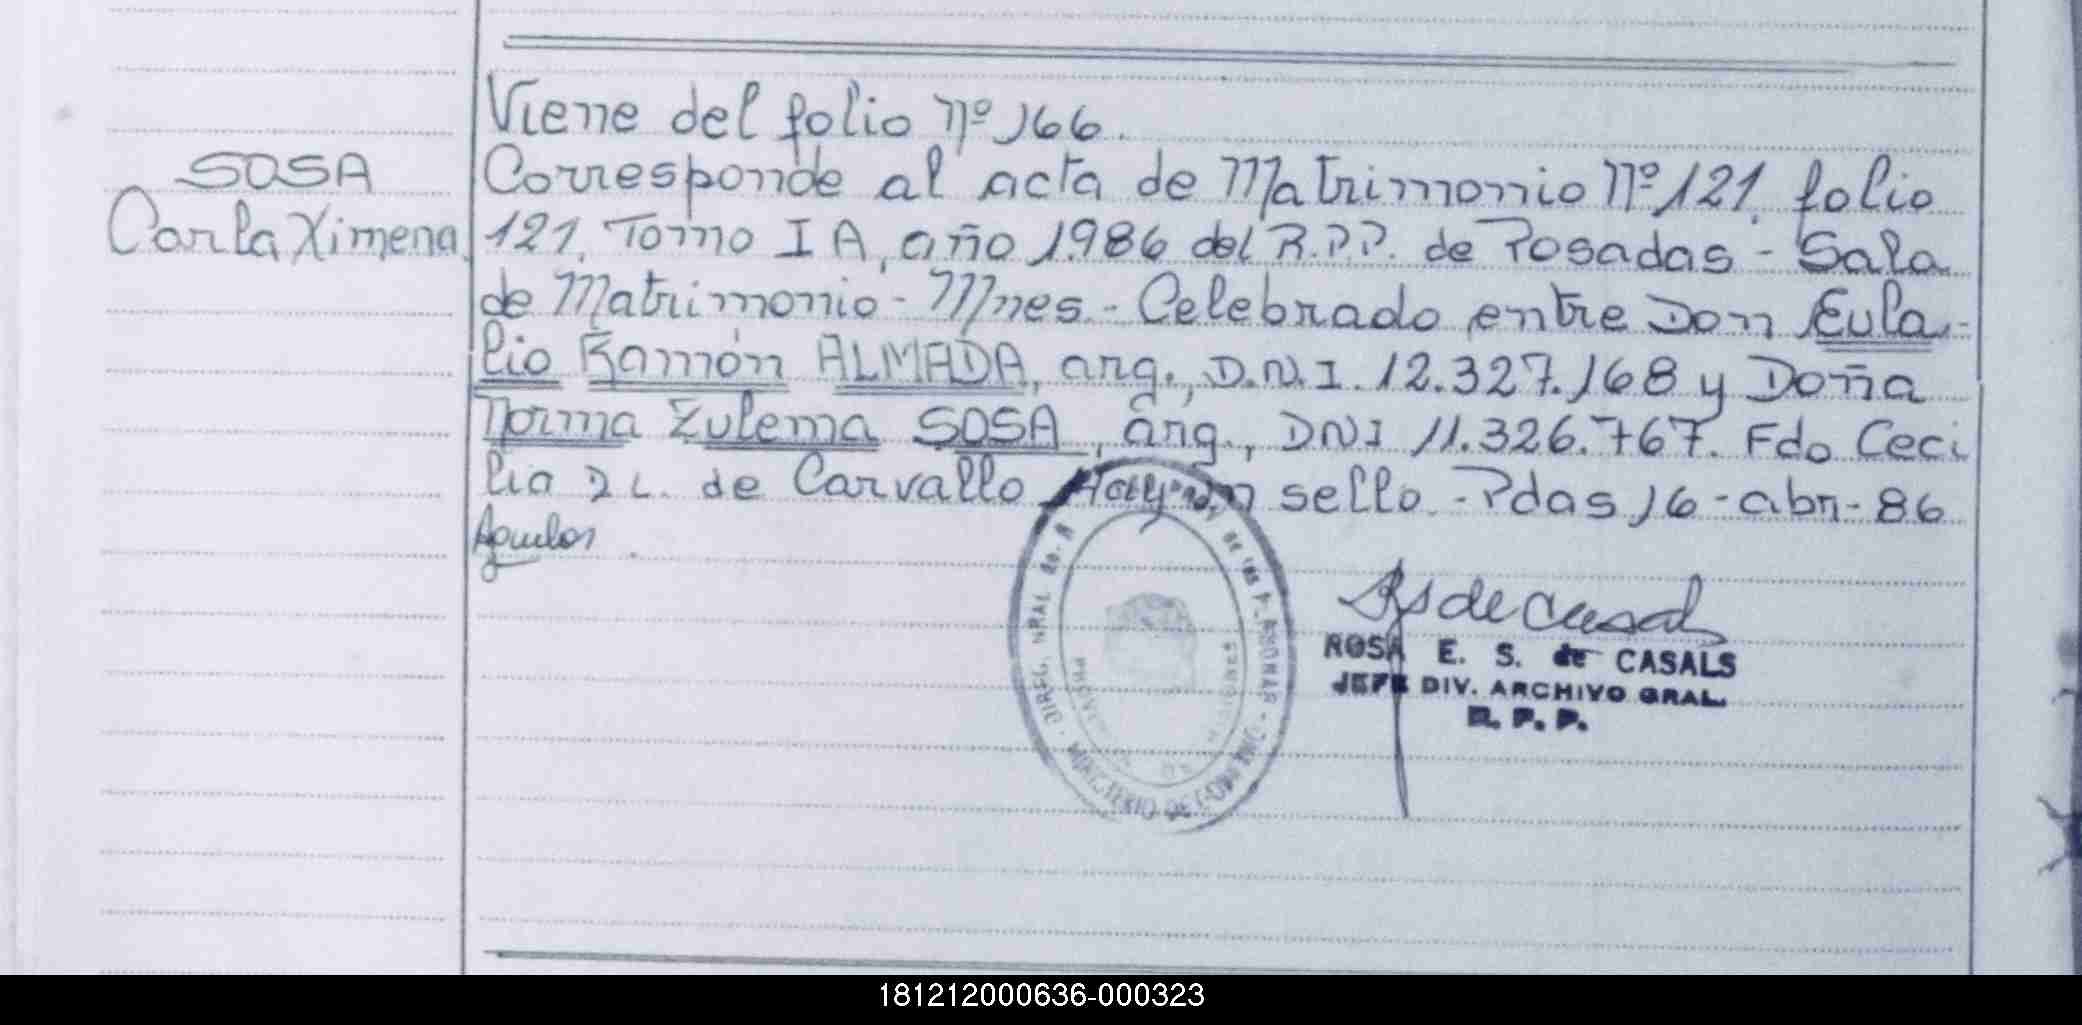 Viene del folio Nº 166.
SOSA
Carla Ximena.
Corresponde al acta de Matrimonio Nº 121, folio
121, Tomo I A, año 1986 del R.P.P. de Posadas - Sala
de Matrimonio - Mnes. - Celebrado entre Don Eula-
lio Ramón ALMADA, arg., D.N.I. 12.327.168 y Doña
Norma Zulema SOSA, arg., DNI 11.326.767. Fdo Ceci
lia L. de Carvallo Hay un sello. - Pdas 16 - abr - 86
ROSA E. S. de CASALS
JEFE DIV. ARCHIVO GRAL.
R. P. P.
DE LAS PERSONAS
MINISTERIO DE
181212000636-000323